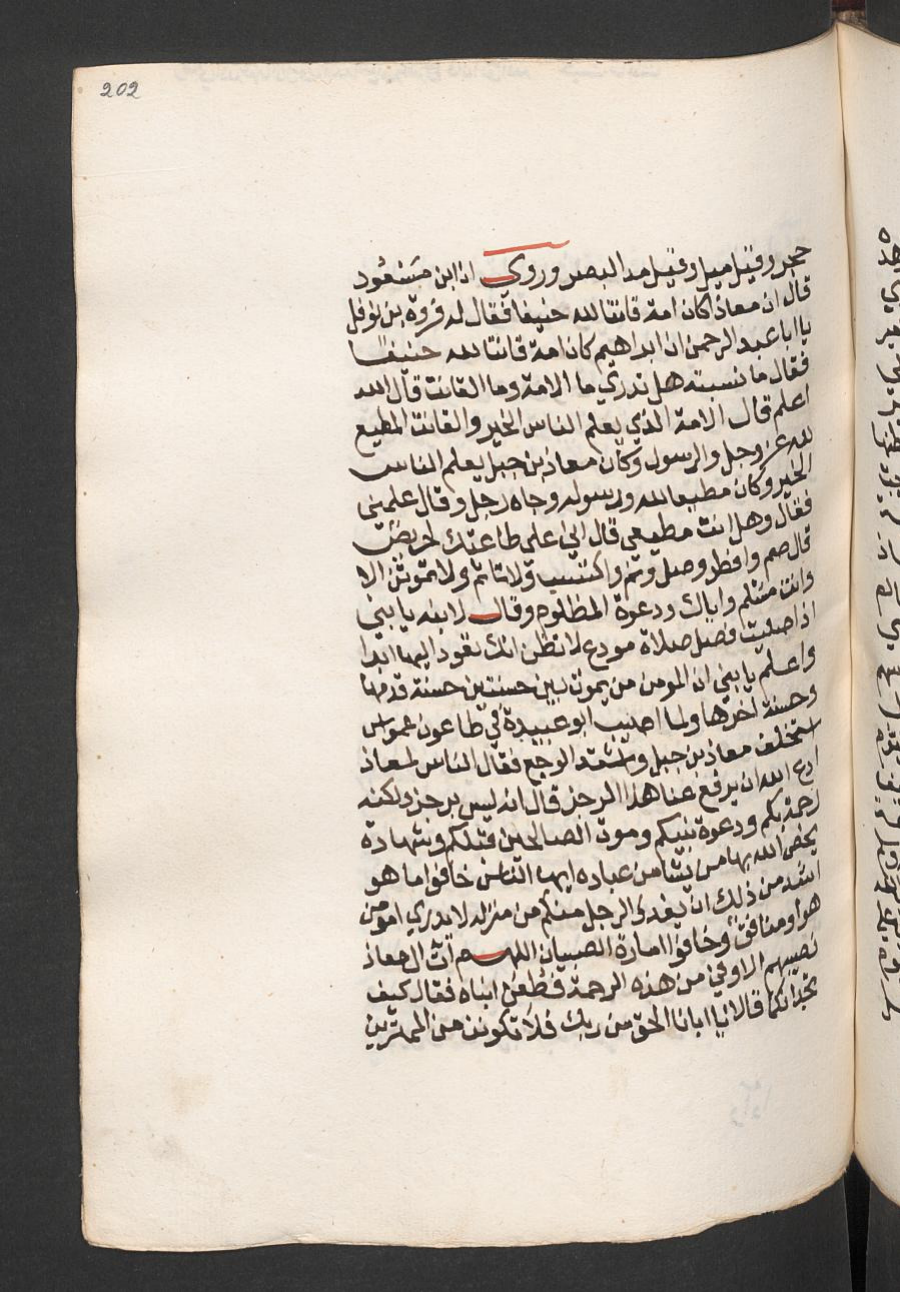 202
حجر وقيل ميل وقيل مد البصر وروي ان ابن مسعود
قال ان معاذا كان امة قانتا لله حنيفا فقال له فروة بن نوفل
يا ابا عبد الرحمن ان ابراهيم كان امة قانتا لله حنيفا
فقال ما نسيته هل تدري ما الامة وما القانت قال الله
اعلم قال الامة الذي يعلم الناس الخير والقانت المطيع
لله عز وجل والرسول وكان معاذ بن جبل يعلم الناس
الخير وكان مطيعا لله ورسوله وجاه رجل وقال علمني
فقال وهل انت مطيعي قال اني على طاعتك لحريص
قال صم وافطر وصل ونم واكتسب ولا تاثم ولا تموتن الا
وانت مسلم واياك ودعوة المظلوم وقال لابنه يا بني
اذا صليت فصل صلاة مودع لا تظن انك تعود اليها ابدا
واعلم يا بني ان المومن من يموت بين حسنتين حسنة قدمها
وحسنة اخرها ولما اصيب ابو عبيدة في طاعون عمواس
استخلف معاذ بن جبل واشتد الوجع فقال الناس لمعاذ
ادع الله ان يرفع عنا هذا الرجز قال انه ليس برجز ولكنه
رحمة بكم ودعوة نبيكم وموت الصالحين قبلكم وشهادة
يخص الله بها من يشا من عباده ايها الناس خافوا ما هو
اشد من ذلك ان يغدى الرجل منكم من منزله لا يدري امومن
هو او منافق وخافوا امارة الصبيان اللهم آت ال معاذ
نصيبهم الاوفي من هذه الرحمة فطعن ابناه فقال كيف
تجدانكما قالا يا ابانا الحق من ربك فلا تكونن من الممترين